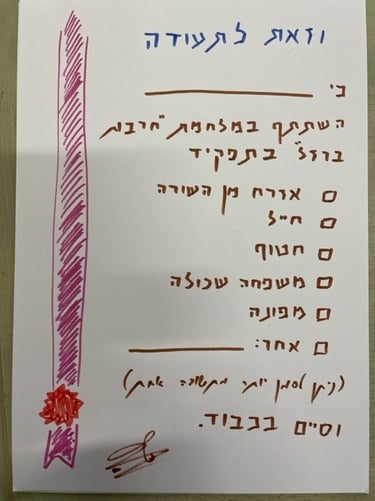 וזאת לתעודה
כי ____________
השתתף במלחמת "חרבות
ברזל" בתפקיד
□ אזרח מן השורה
□ חייל
□ חטוף
□ משפחה שכולה
□ מפונה
□ אחר: ________
(ניתן לסמן יותר מתשובה אחת)
וסיים בכבוד.